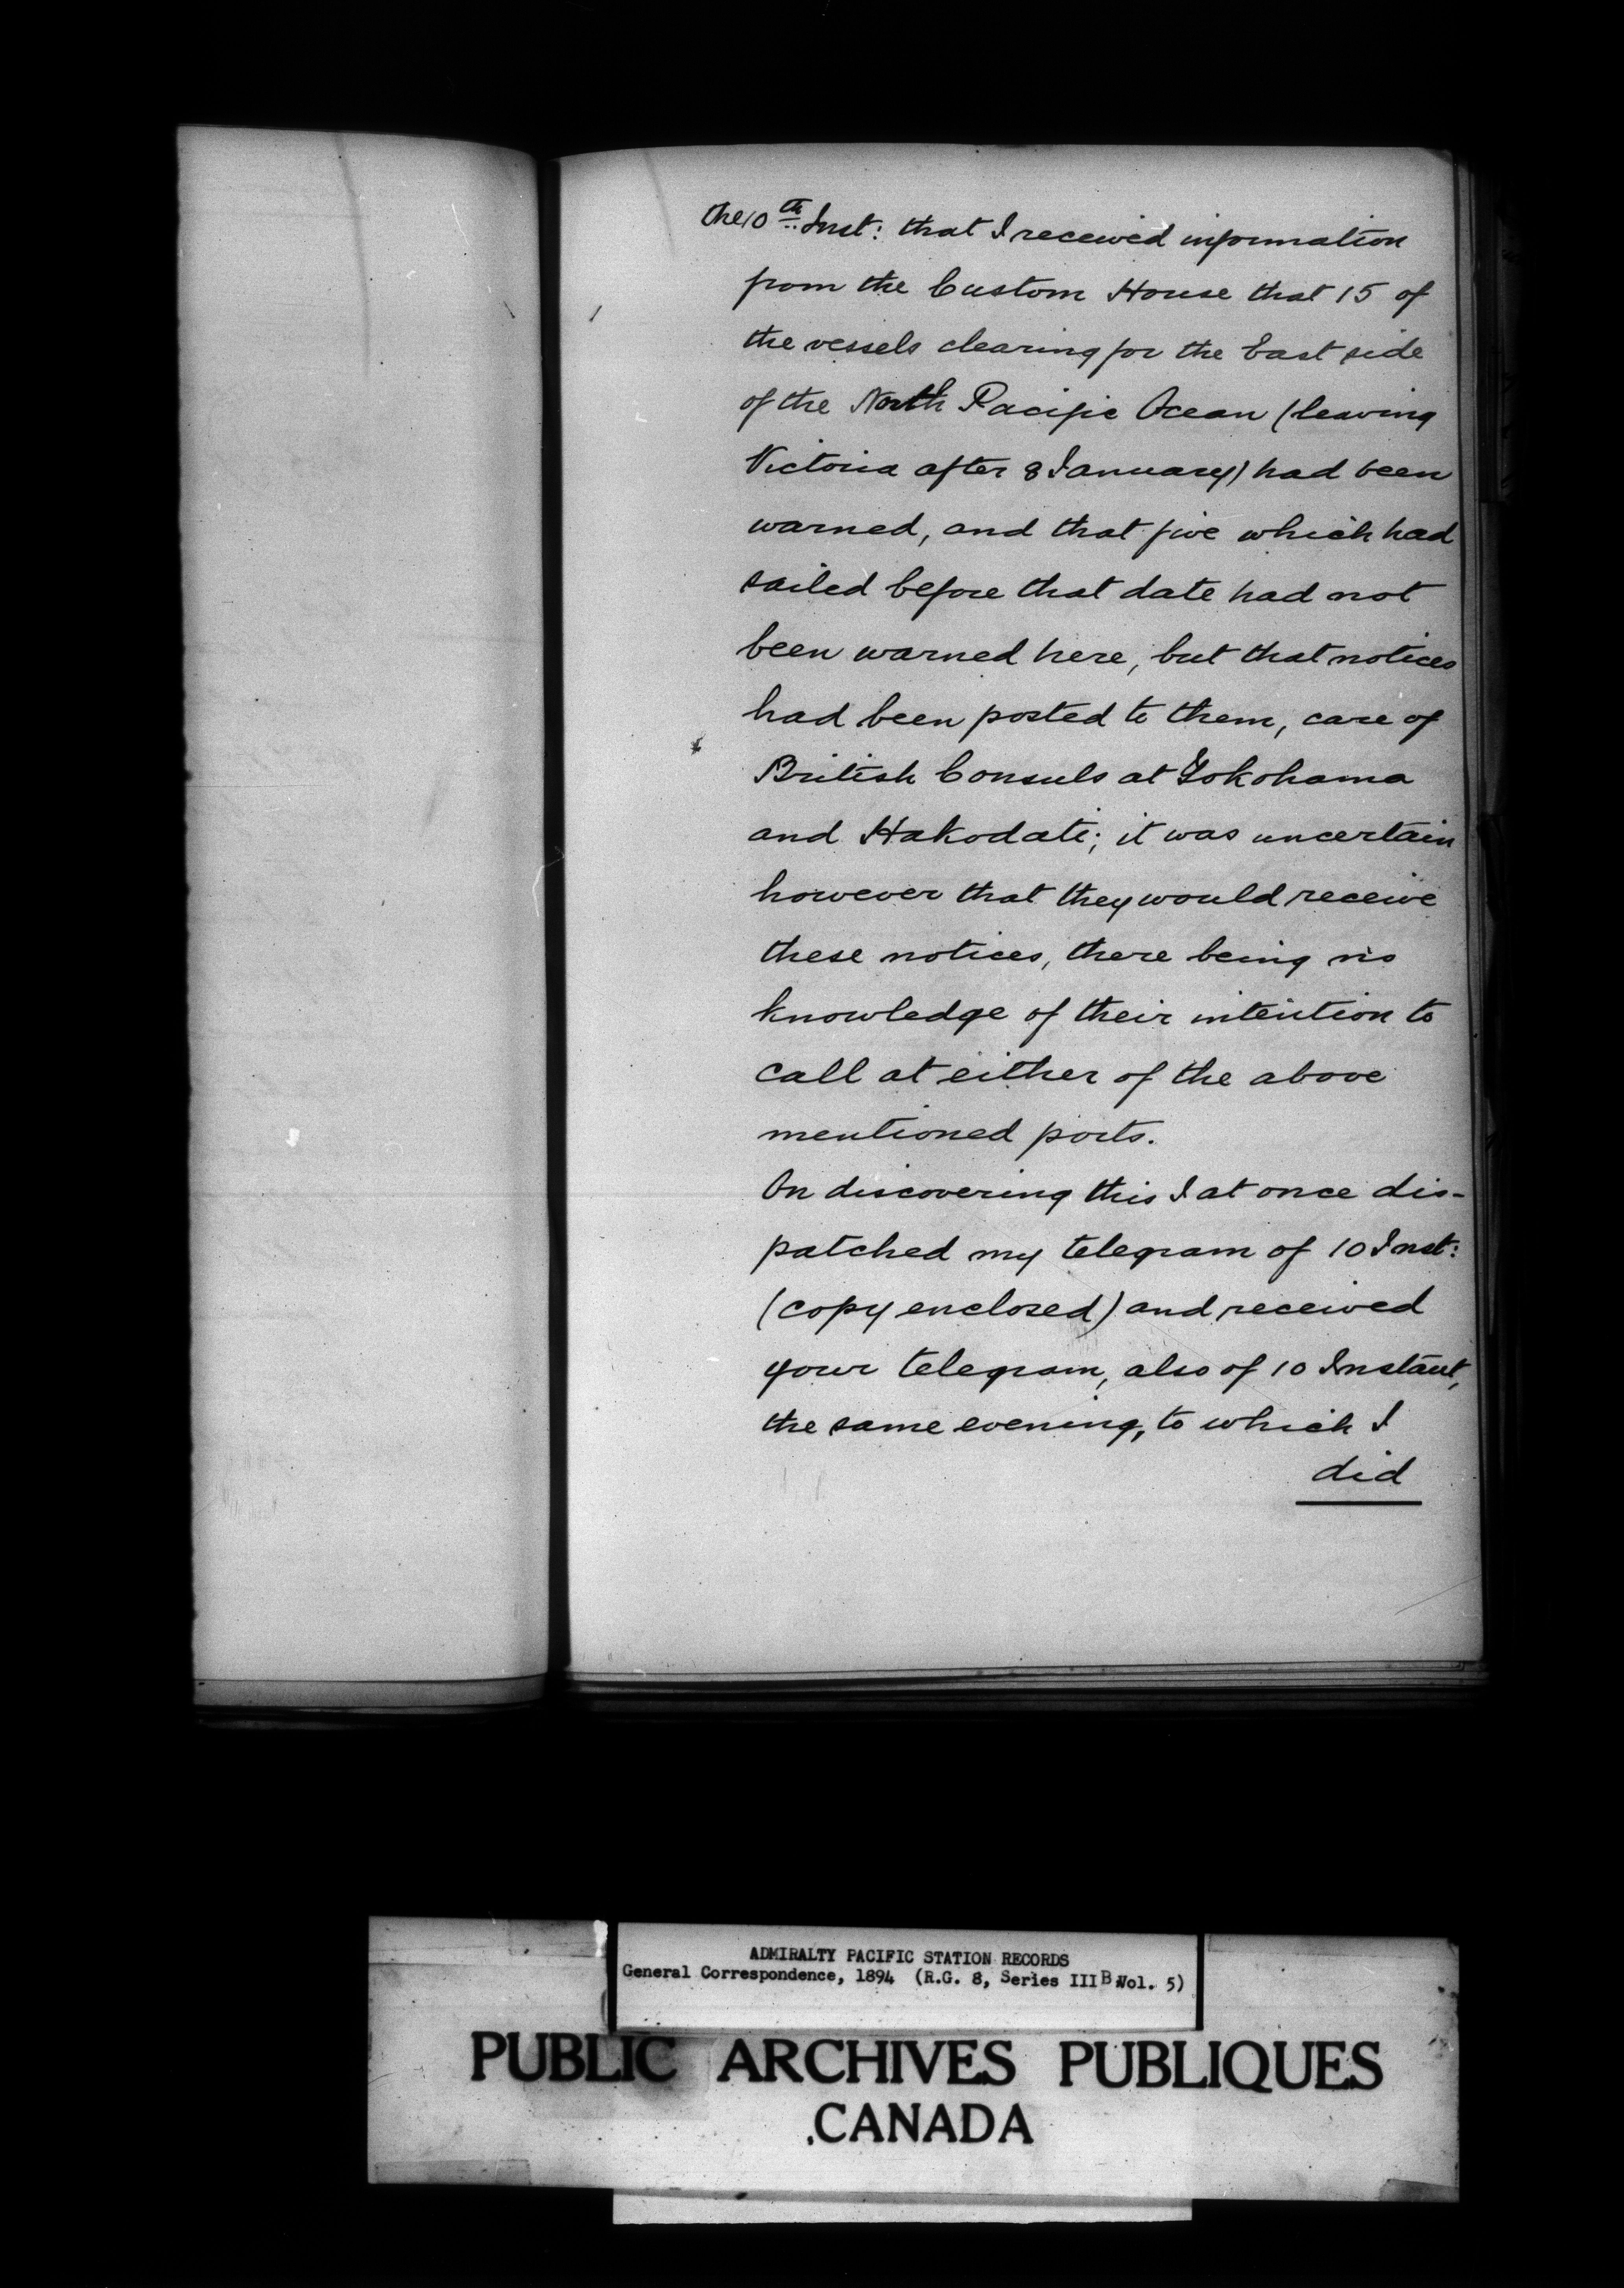 the 10th Inst: that I received information
from the Custom House that 15 of
the vessels clearing for the East side
of the North Pacific Ocean (leaving
Victoria after 8 January) had been
warned, and that five which had
sailed before that date had not
been warned here, but that notices
had been posted to them, care of
British Consuls at Yokohama
and Hakodate; it was uncertain
however that they would receive
these notices, there being no
knowledge of their intention to
call at either of the above
mentioned ports.
On discovering this I at once dis-
patched my telegram of 10 Inst:
(copy enclosed) and received
your telegram, also of 10 Instant,
the same evening, to which I
did
ADMIRALTY PACIFIC STATION RECORDS
General Correspondence, 1894 (R.G. 8, Series III B Vol. 5)
PUBLIC ARCHIVES PUBLIQUES
CANADA